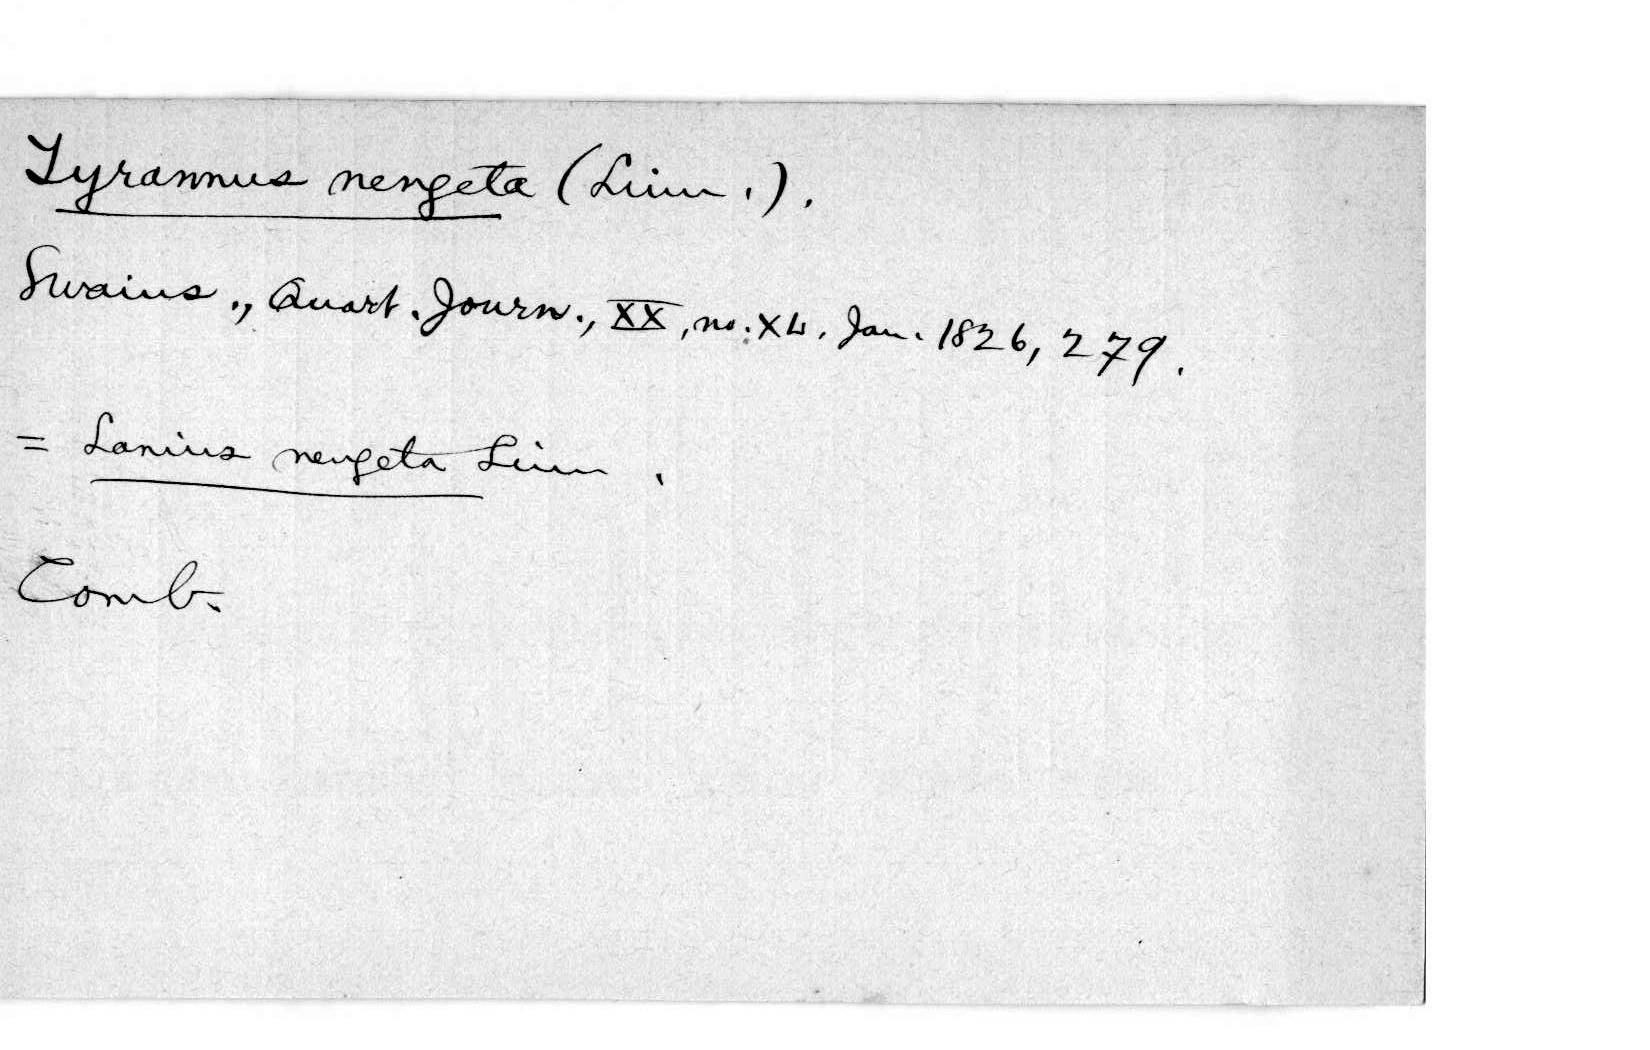 Tyrannus nengeta (Linn.).
Swains., Quart. Journ., XX, no. XL, Jan. 1826, 279.
= Lanius nengeta Linn.
Comb.